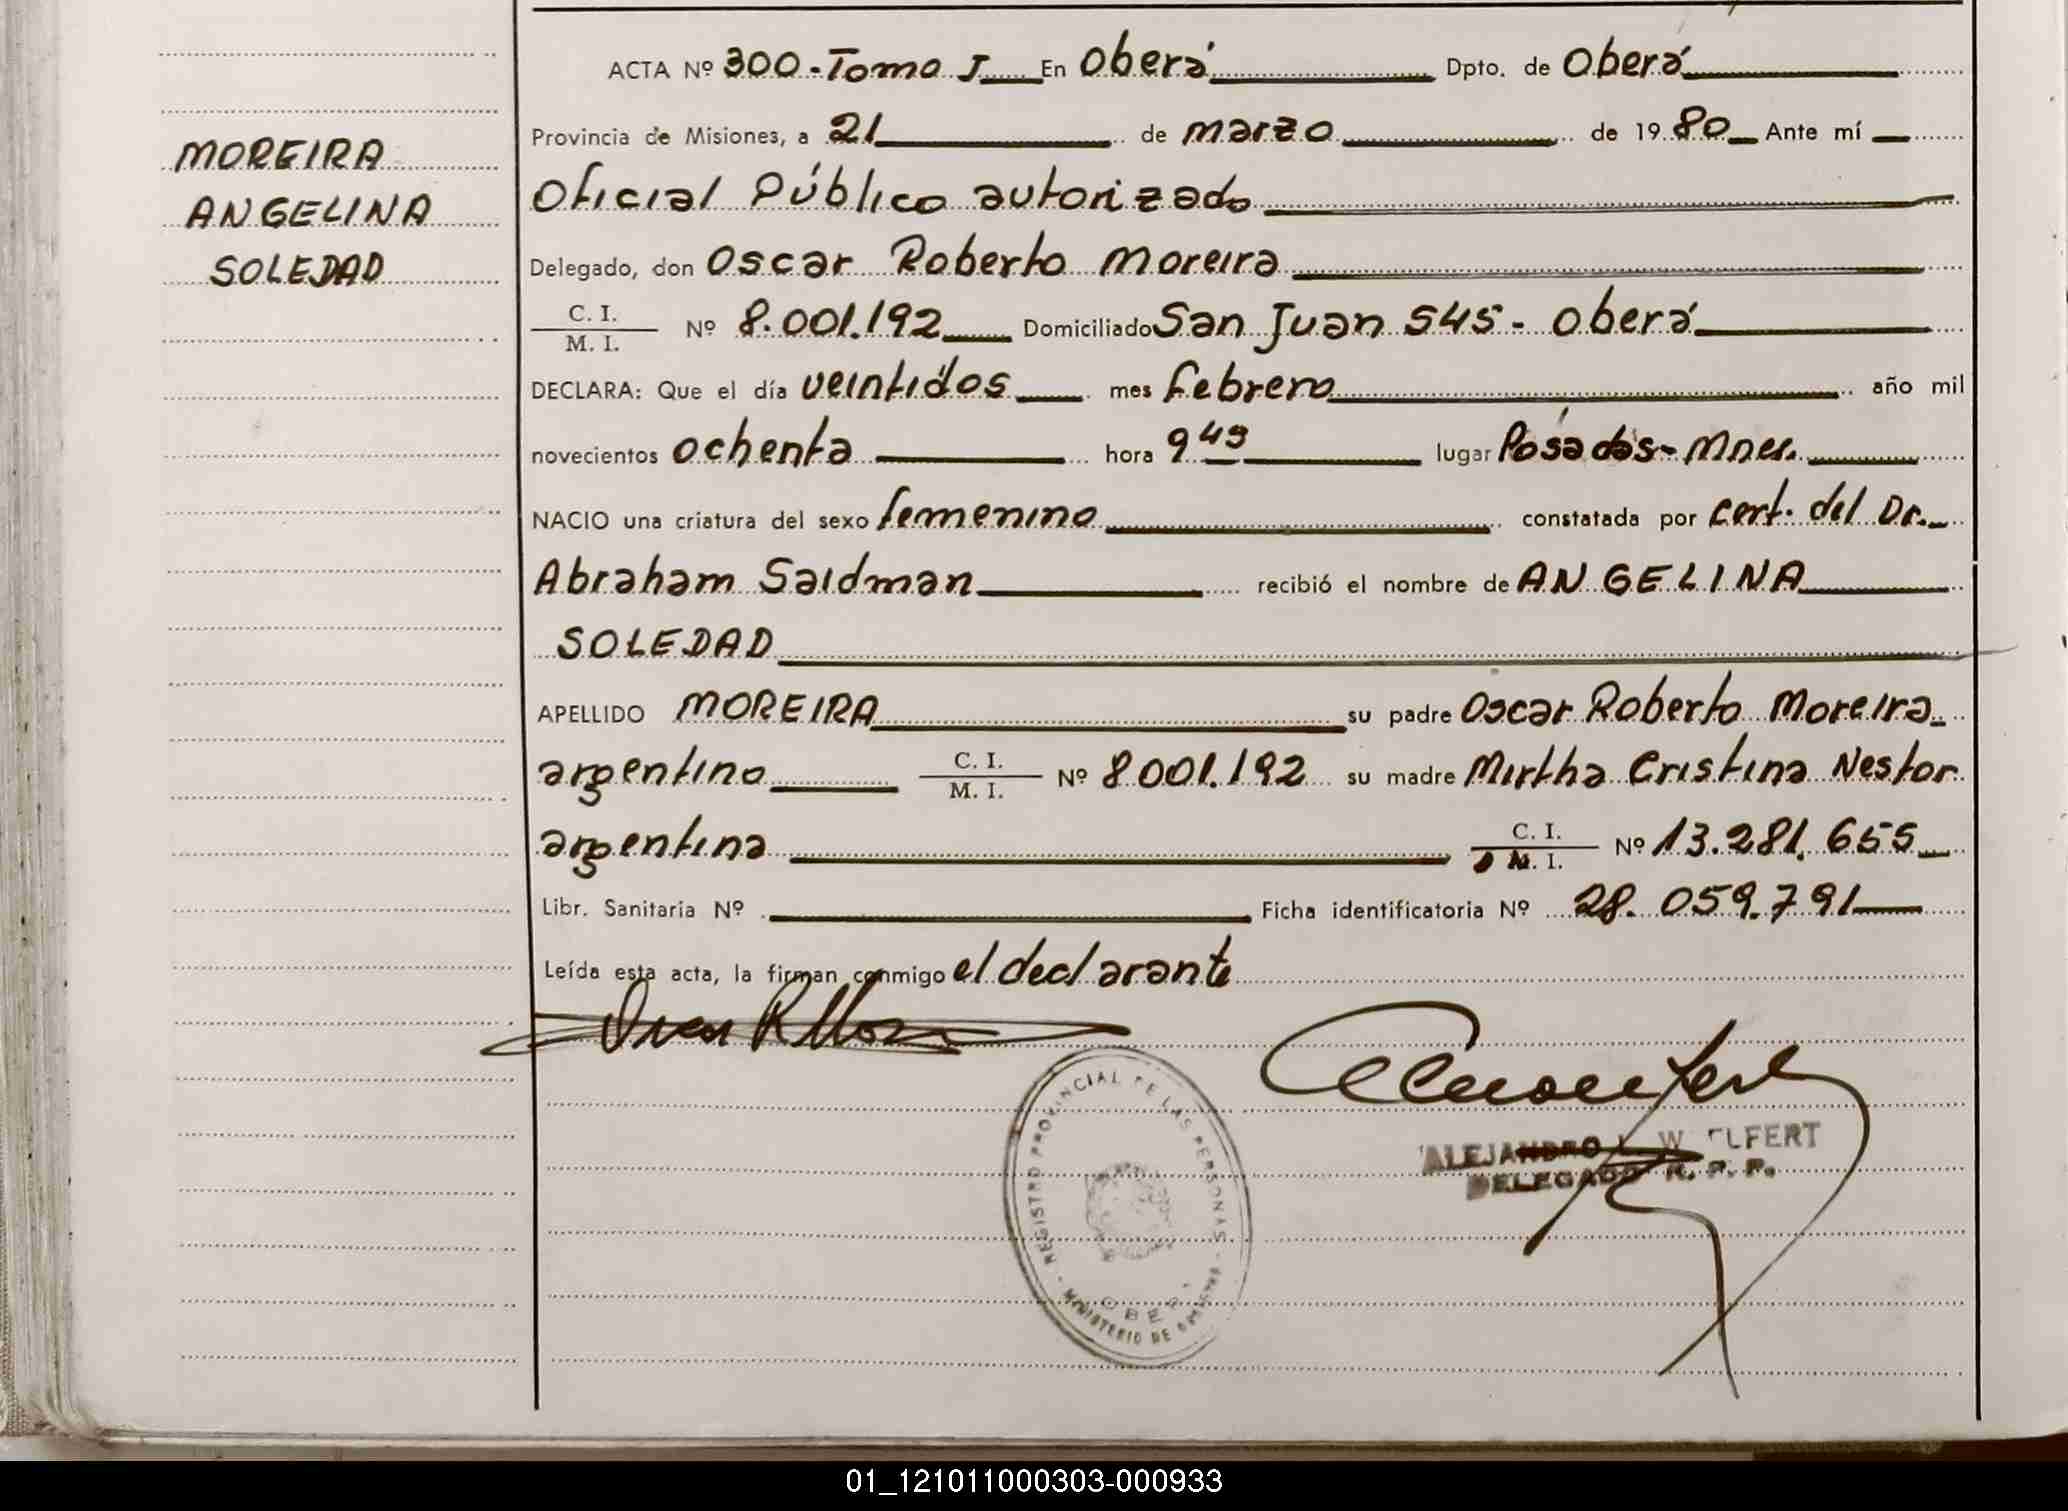 ACTA Nº 300-Tomo I En Oberá Dpto. de Oberá
Provincia de Misiones, a 21 de marzo de 1980 Ante mí
MOREIRA
ANGELINA
SOLEDAD
Oficial Público autorizado
Delegado, don Oscar Roberto Moreira
C. I.
M. I. Nº 8.001.192 Domiciliado San Juan 545 - Oberá
DECLARA: Que el día veintidós mes febrero año mil
novecientos ochenta hora 9 49 lugar Posadas - Mnes.
NACIO una criatura del sexo femenino constatada por cert. del Dr.
Abraham Saidman recibió el nombre de ANGELINA
SOLEDAD
APELLIDO MOREIRA su padre Oscar Roberto Moreira
argentino C. I.
M. I. Nº 8.001.192 su madre Mirtha Cristina Nestor
argentina C. I.
M. I. Nº 13.281.655
Libr. Sanitaria Nº Ficha identificatoria Nº 28.059.791
Leída esta acta, la firman conmigo el declarante
REGISTRO PROVINCIAL DE LAS PERSONAS
MINISTERIO DE
ALEJANDRO L. W
DELEGADO R. P. P.
01_121011000303-000933